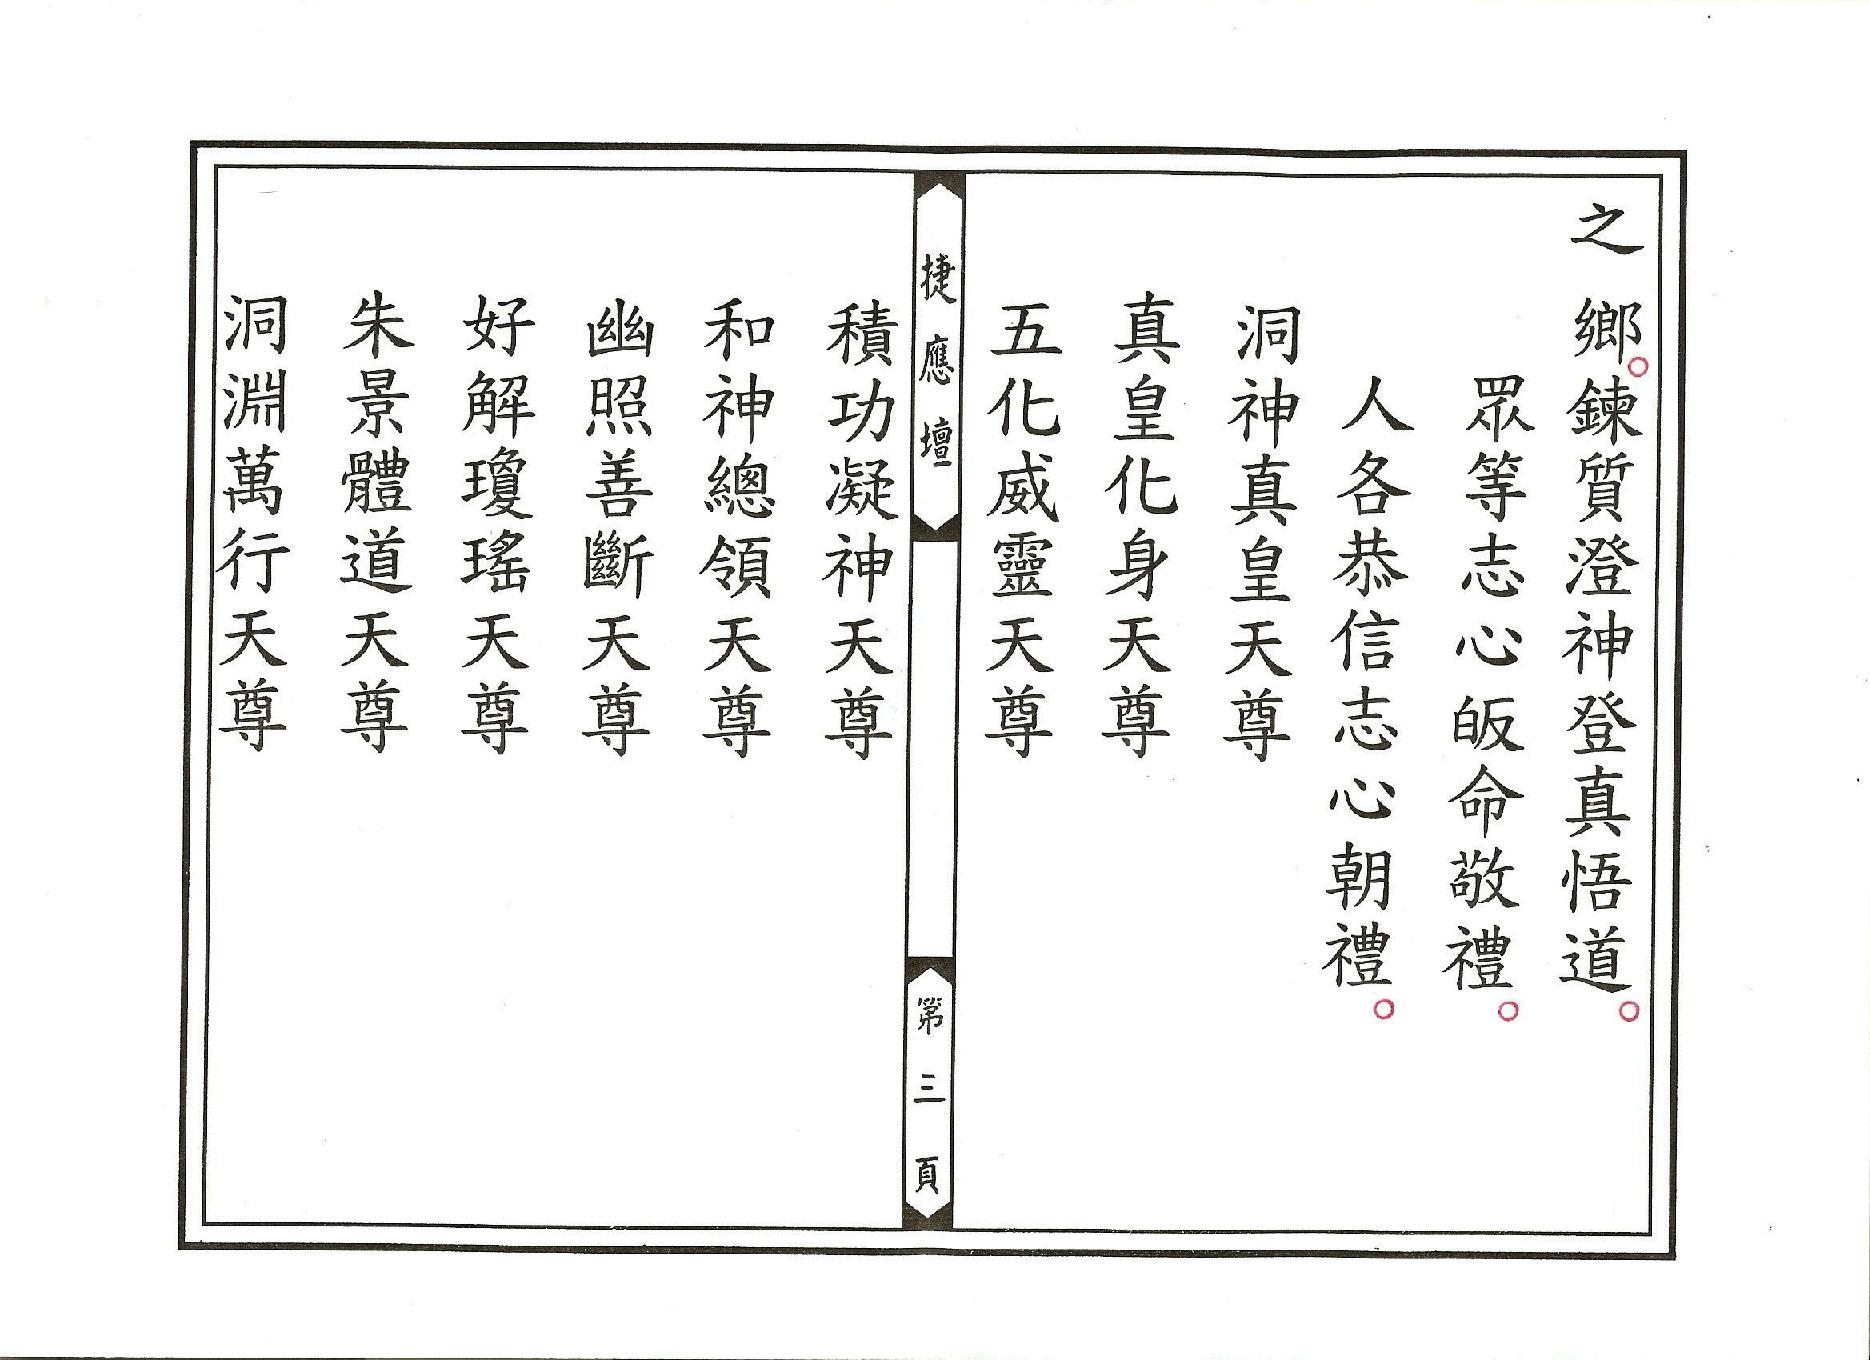 之鄉。鍊質澄神登真悟道。
眾等志心皈命敬禮。
人各恭信志心朝禮。
洞神真皇天尊
真皇化身天尊
五化威靈天尊
捷應壇
第三頁
積功凝神天尊
和神總領天尊
幽照善斷天尊
好解瓊瑤天尊
朱景體道天尊
洞淵萬行天尊